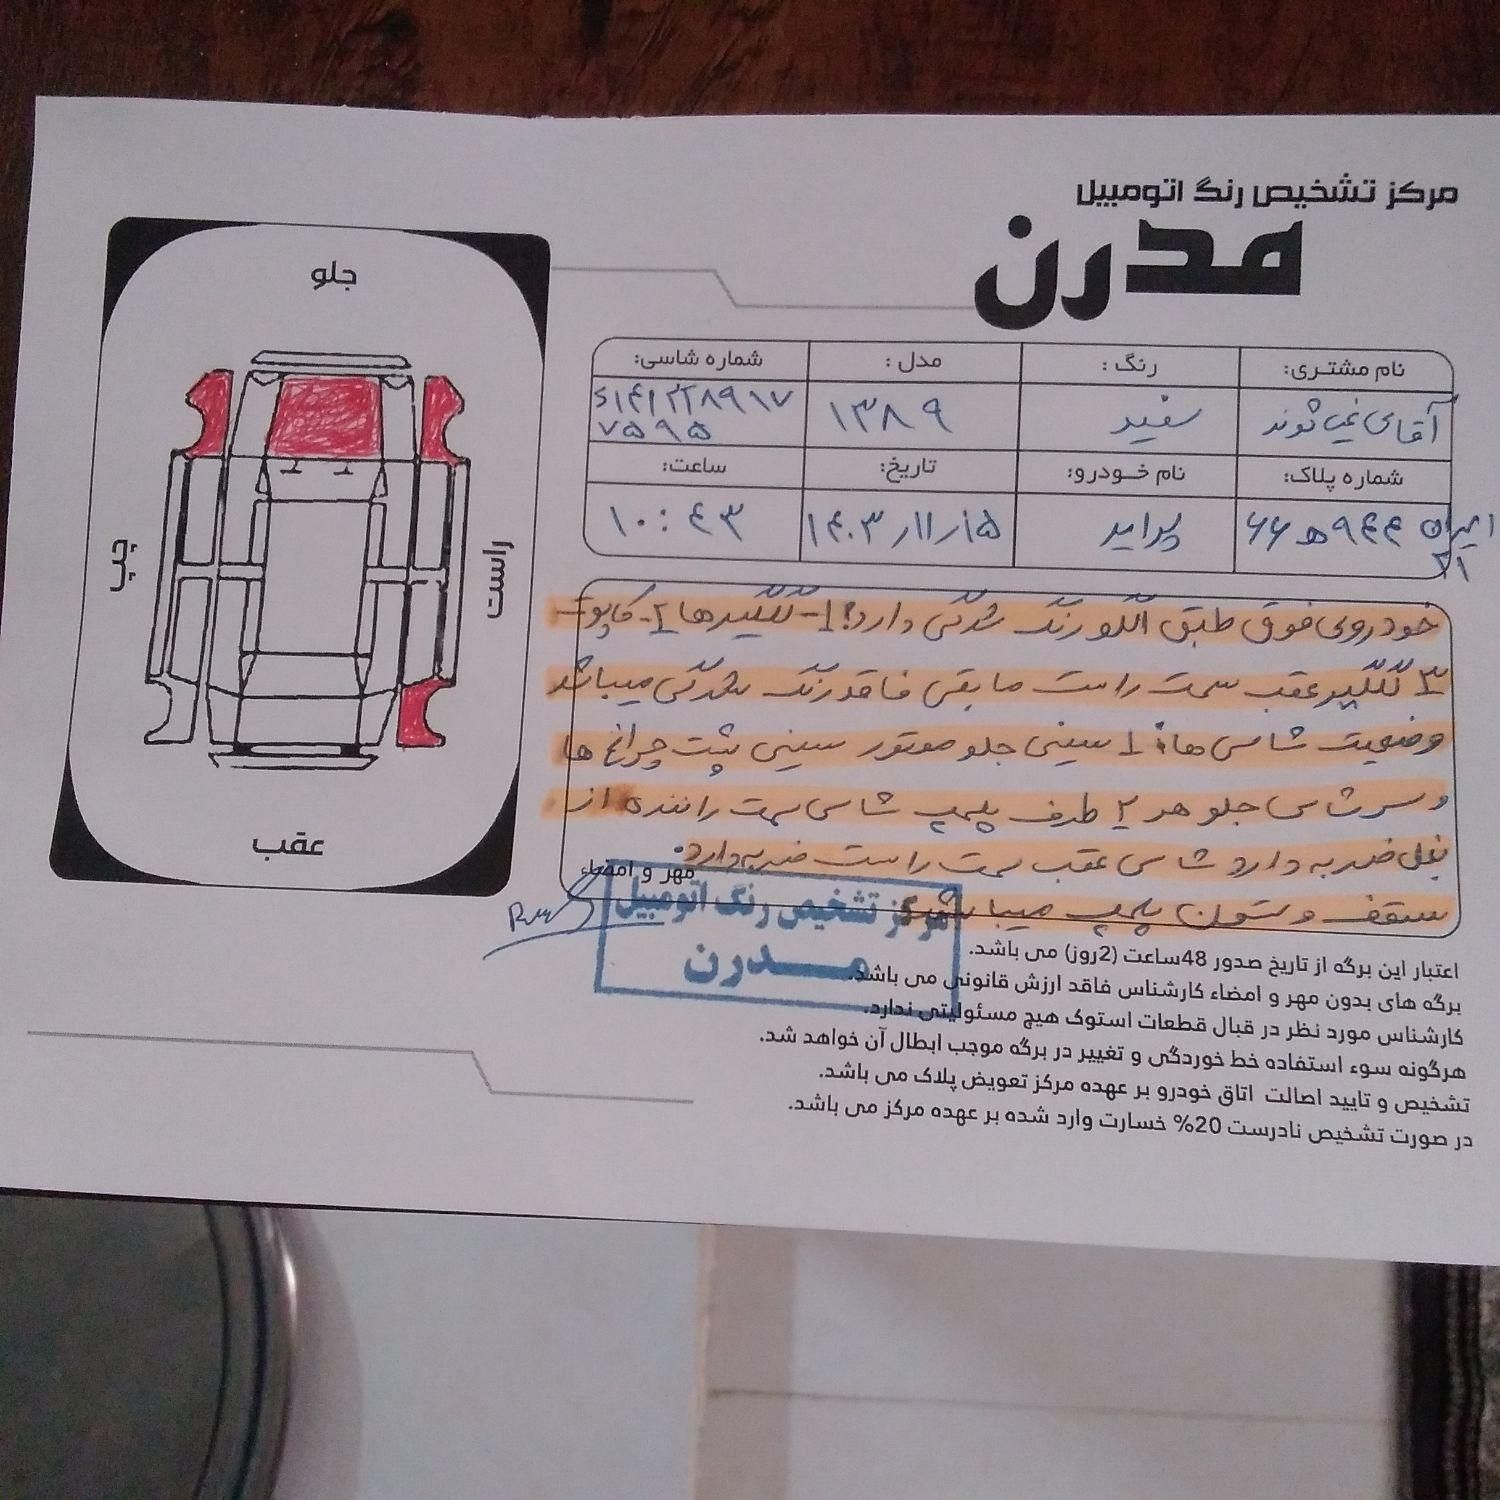 مرکز تشخیص رنگ اتومبیل
مدرن
نام مشتری: رنگ : مدل : شماره شاسی:
آقای سفید ۱۳۸۹ S۱۴۱۲۲۸۹۱۷
۷۵۹۵
شماره پلاک: نام خودرو: تاریخ: ساعت:
ایران ۹۴۴ ه ۶۶ پراید ۱۴۰۳/۱۱/۱۵ ۱۰:۴۳
۲۱
جلو
چپ
راست
عقب
خودروی فوق طبق الگو رنگ شدگی دارد؟ ۱- گلگیرها ۲- کاپوت
۳ گلگیر عقب سمت راست مابقی فاقد رنگ شدگی میباشد
وضعیت شاسی ها: ۱ سینی جلو موتور سینی پشت چراغ ها
و سر شاسی جلو هر ۲ طرف پلمپ شاسی سمت راننده از
بغل ضربه دارد شاسی عقب سمت راست ضربه دارد.
سقف و ستون پلمپ میباشد
مهر و امضاء
مرکز تشخیص رنگ اتومبیل
مدرن
اعتبار این برگه از تاریخ صدور 48ساعت (2روز) می باشد.
برگه های بدون مهر و امضاء کارشناس فاقد ارزش قانونی می باشد.
کارشناس مورد نظر در قبال قطعات استوک هیچ مسئولیتی ندارد.
هرگونه سوء استفاده خط خوردگی و تغییر در برگه موجب ابطال آن خواهد شد.
تشخیص و تایید اصالت اتاق خودرو بر عهده مرکز تعویض پلاک می باشد.
در صورت تشخیص نادرست 20% خسارت وارد شده بر عهده مرکز می باشد.